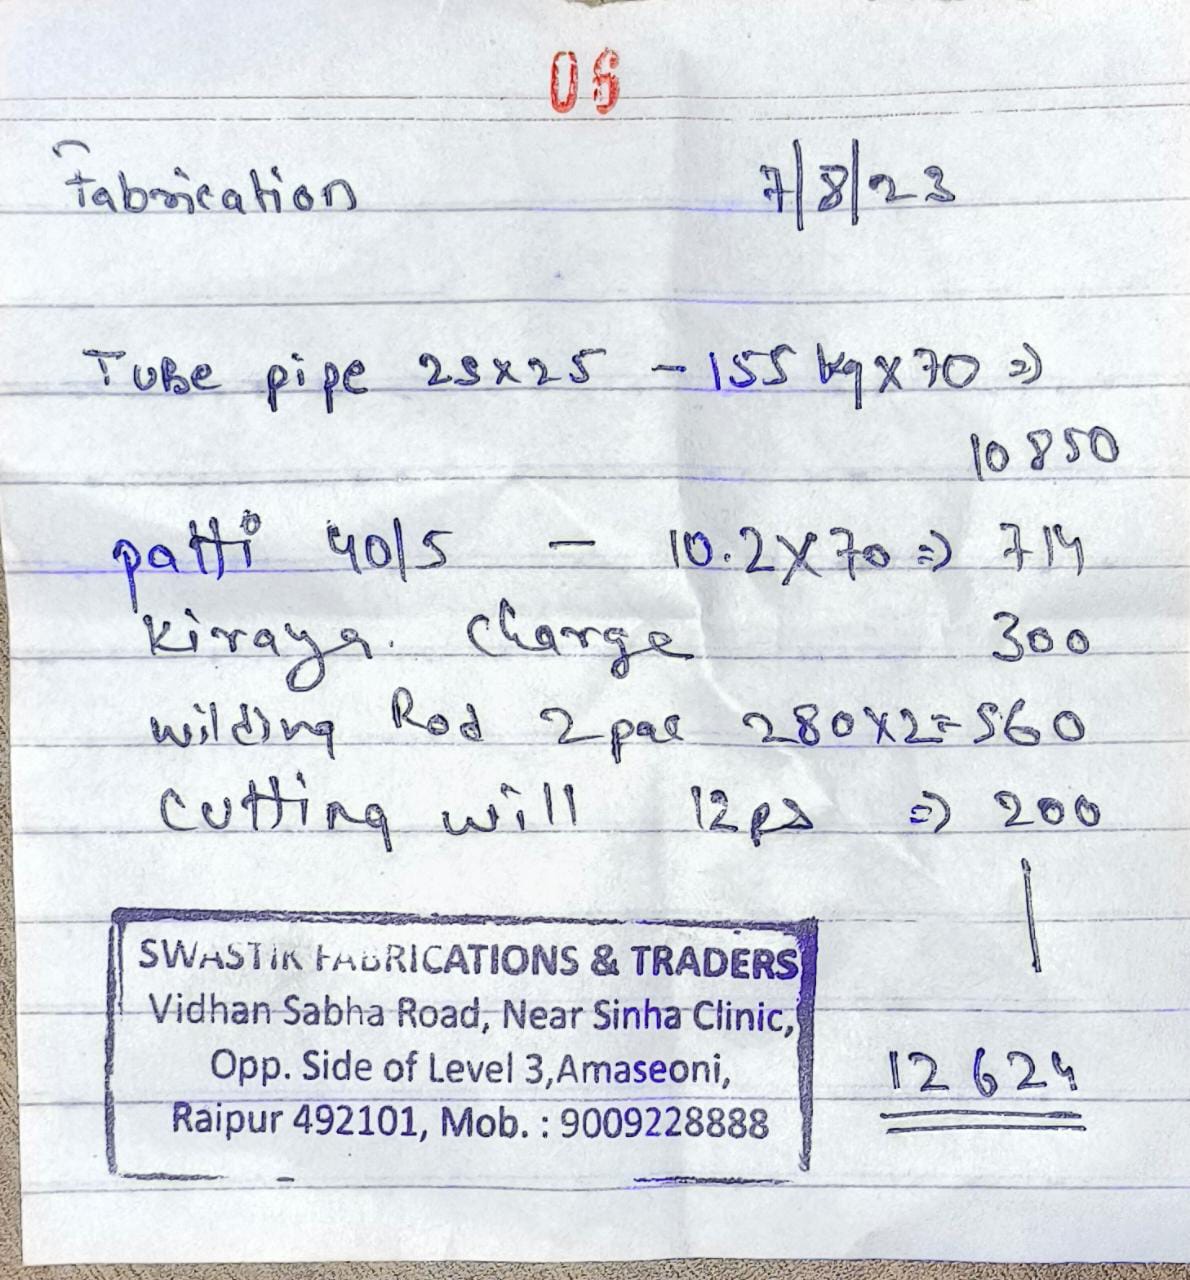 06
Fabrication 7/8/23
Tube pipe 25x25 - 155 kg x 70 =>
10850
patti 40/5 - 10.2 x 70 => 714
kiraya. charge 300
wilding Rod 2 pac 280x2=560
cutting will 12 ps => 200
SWASTIK FABRICATIONS & TRADERS
Vidhan Sabha Road, Near Sinha Clinic,
Opp. Side of Level 3,Amaseoni,
Raipur 492101, Mob. : 9009228888
12624